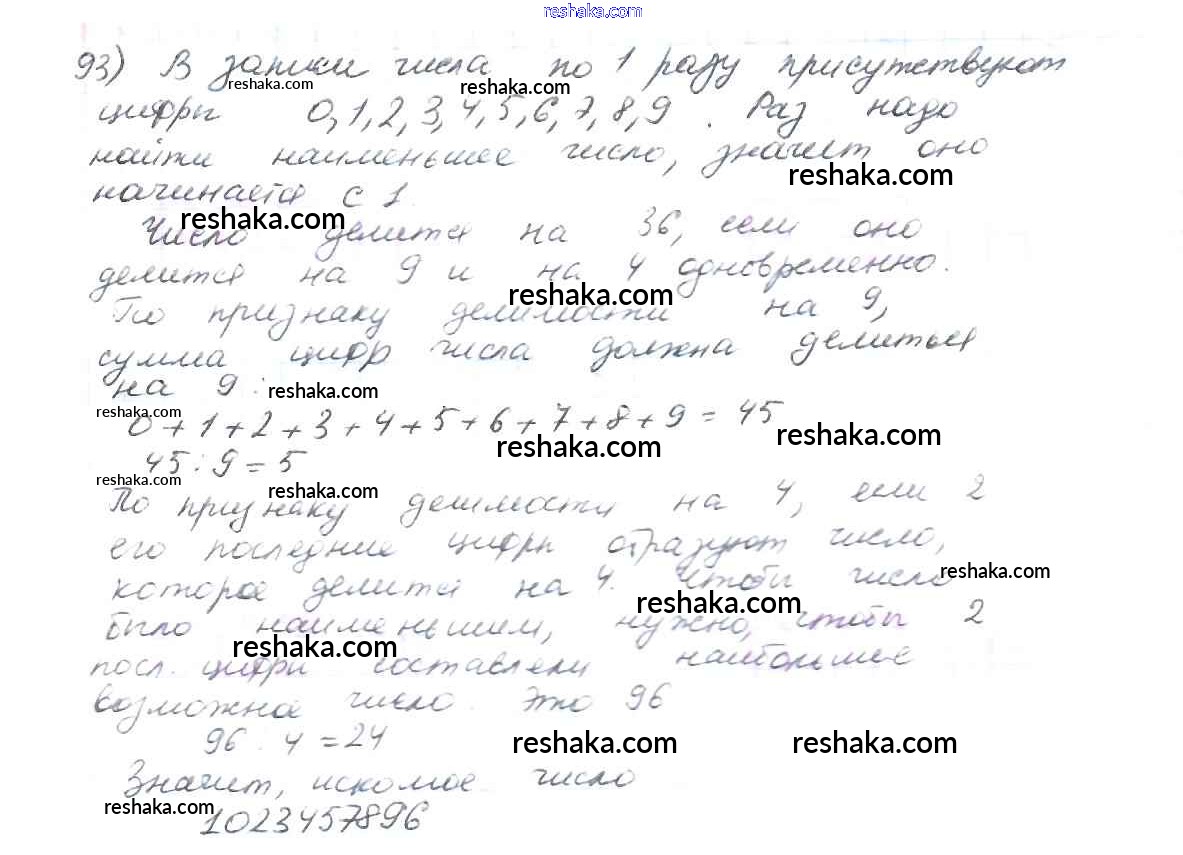 reshaka.com
93) В записи числа по 1 разу присутствуют
reshaka.com reshaka.com
цифры 0,1,2,3,4,5,6,7,8,9. Раз надо
найти наименьшее число, значит оно
reshaka.com
начинается с 1.
reshaka.com
Число делится на 36, если оно
делится на 9 и на 4 одновременно.
reshaka.com
По признаку делимости на 9,
сумма цифр числа должна делиться
на 9:
reshaka.com
reshaka.com
0+1+2+3+4+5+6+7+8+9=45
reshaka.com reshaka.com
45:9=5
reshaka.com reshaka.com
По признаку делимости на 4, если 2
его последние цифры образуют число,
reshaka.com
которое делится на 4. Чтобы число
reshaka.com
было наименьшим, нужно, чтобы 2
reshaka.com
посл. цифры составляли наибольшее
возможное число. Это 96
96:4=24
reshaka.com reshaka.com
Значит, искомое число
reshaka.com
1023457896